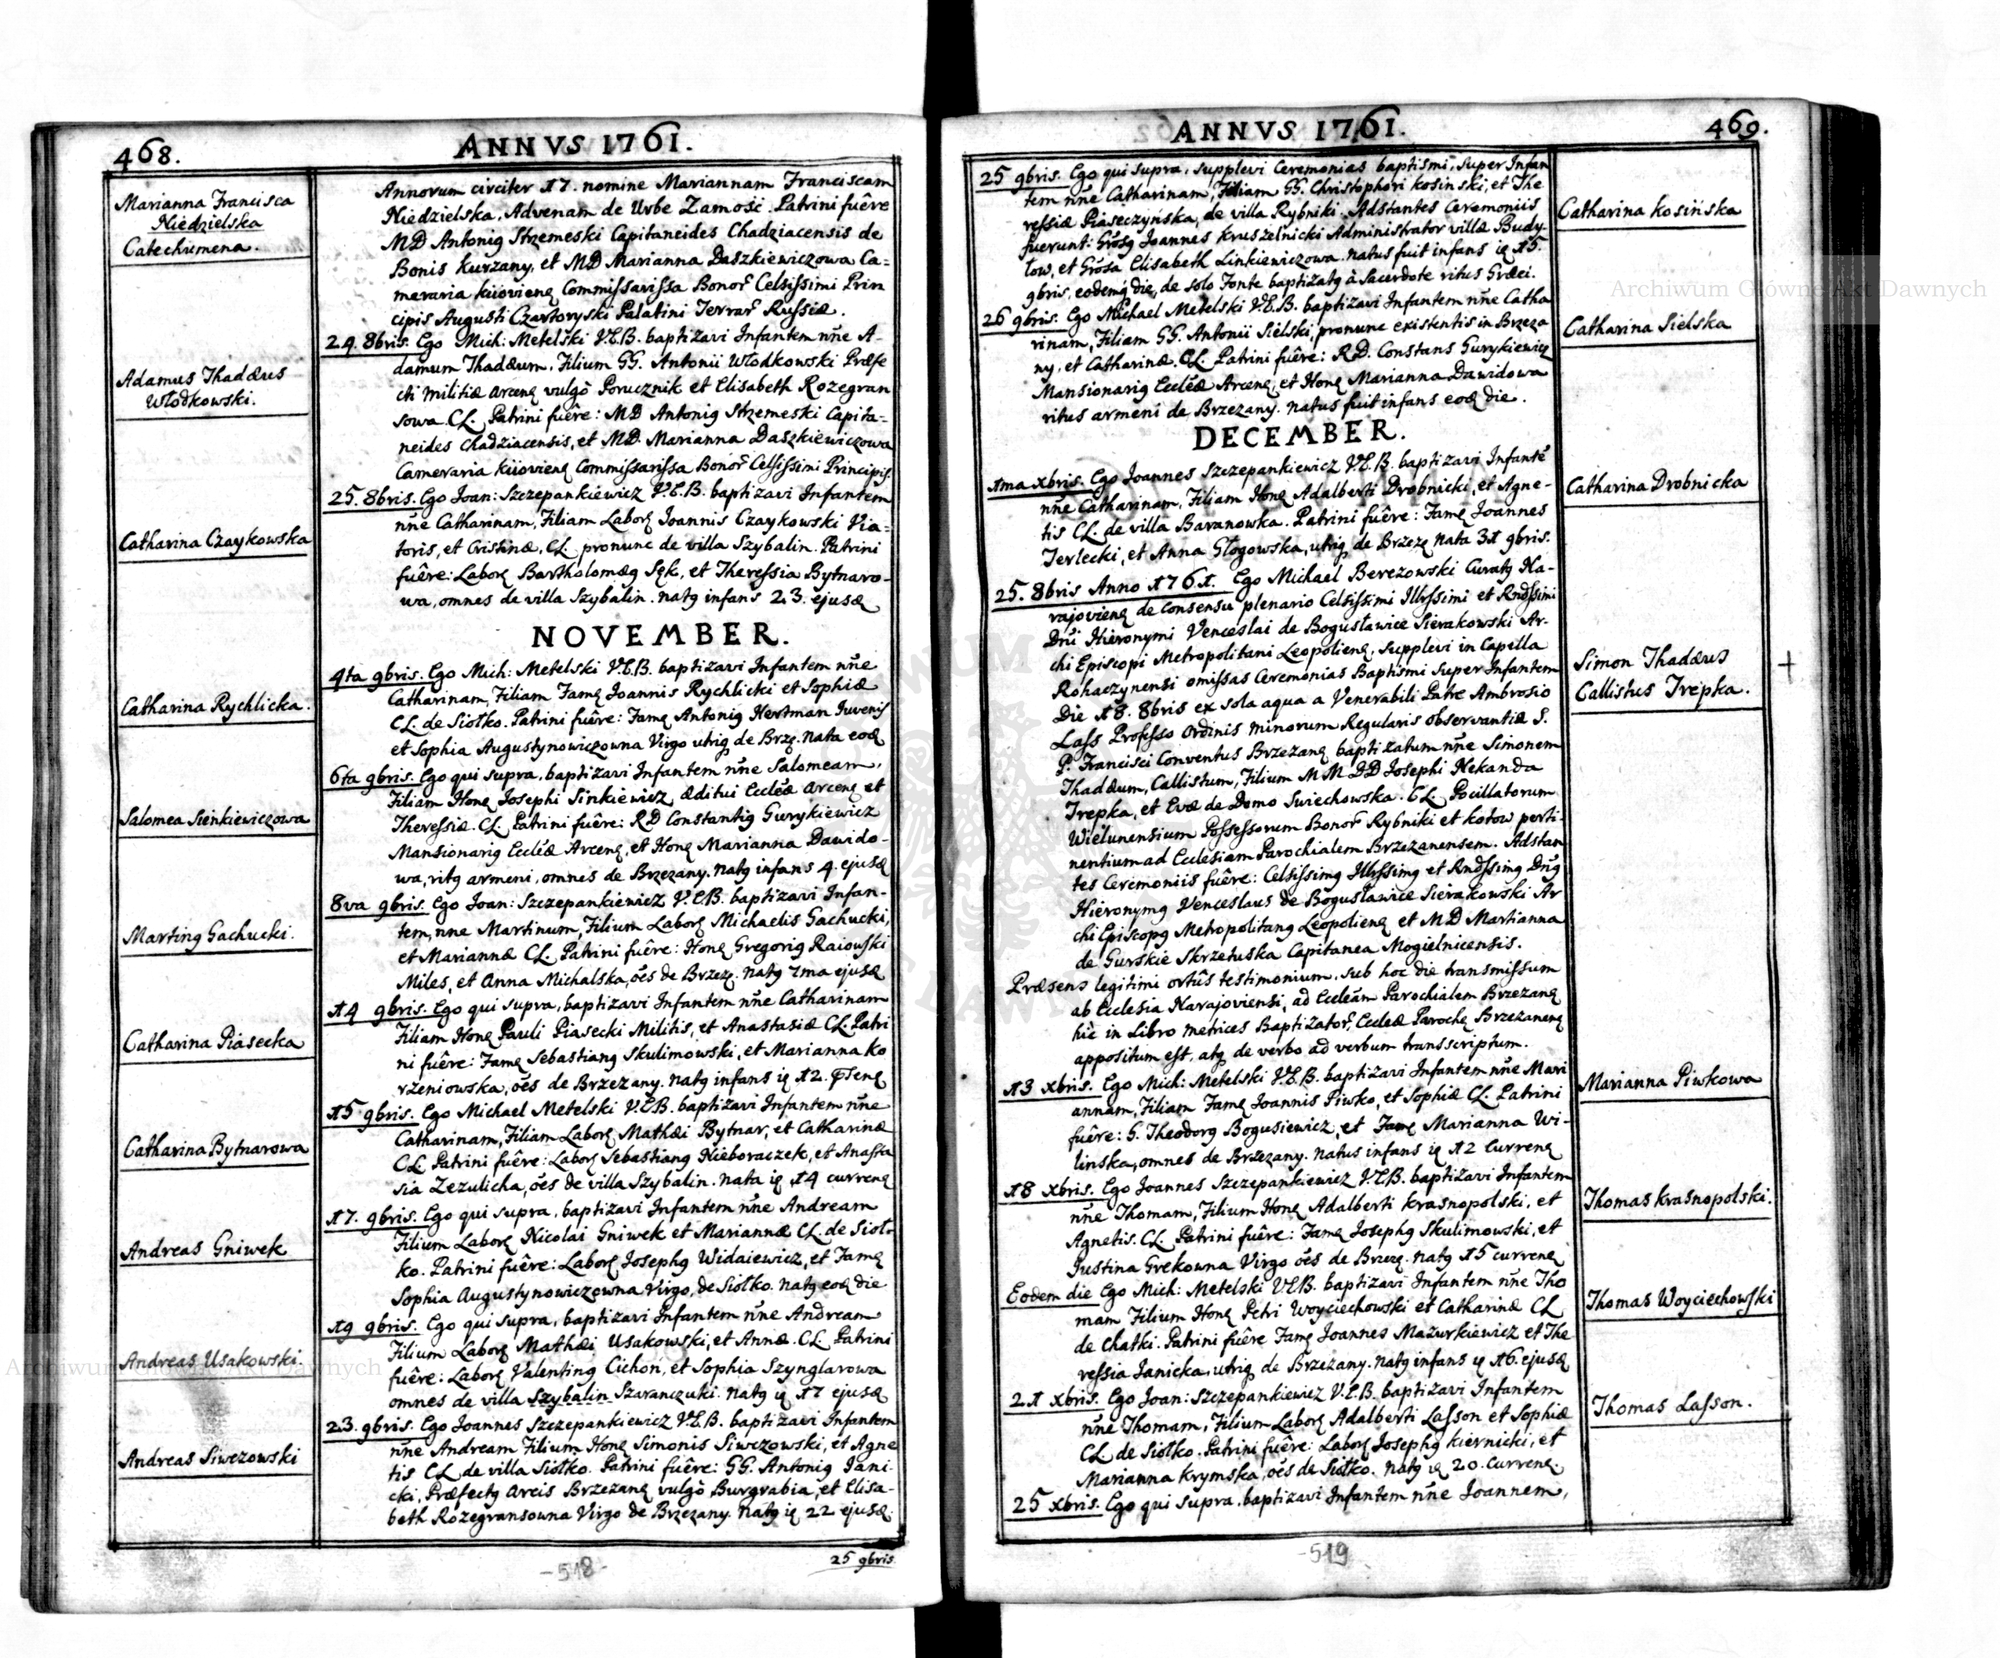 468.
ANNVS 1761.
Marianna Francisca
Niedzielska
Catechumena.
Adamus Thadæus
Włodkowski.
Catharina Czaykowska
Catharina Rychlicka.
Salomea Sienkiewiczowa
Marting Gachucki.
Catharina Piasecka
Catharina Bytnarowa
Andreas Gniwek
Andreas Usakowski.
Andreas Siwczowski
Annorum circiter 17. nomine Mariannam Franciscam
Niedzielska, Advenam de Urbe Zamość. Patrini fuêre
MD Antonig Strzemeski Capitaneides Chadziacensis de
Bonis Kurzany, et MD Marianna Daszkiewiczowa Ca=
meraria Kiioviens Commissarissa Bonor Celsissimi Prin
cipis Augusti Czartoryski Palatini Terrar Russiæ.
24. 8bris. Ego Mich: Metelski V.E.B. baptizavi Infantem nñe A-
damum Thadæum, Filium GG. Antonii Włodkowski Præfe
cti Militiæ Arcens vulgò Porucznik et Elisabeth Rozegran
sowa CL. Patrini fuêre: MD Antonig Strzemeski Capita-
neides Chadziacensis, et MD. Marianna Daszkiewiczowa
Cameraria Kiioviens Commissarissa Bonor Celsissimi Principis.
25. 8bris. Ego Joan: Szczepankiewicz V.E.B. baptizavi Infantem
nñe Catharinam, Filiam Labors Joannis Czaykowski Via=
toris, et Cristinæ, CL. pronunc de villa Szybalin. Patrini
fuêre: Labors Bartholomæg Sęk, et Theressia Bytnaro-
wa, omnes de villa Szybalin. natg infans 23. ejusd
NOVEMBER.
4ta 9bris. Ego Mich: Metelski V.E.B. baptizavi Infantem nñe
Catharinam, Filiam Fams Joannis Rychlicki et Sophiæ
CL. de Siołko. Patrini fuêre: Fams Antonig Hertman Iuvenis
et Sophia Augustynowiczowna Virgo utrig de Brzę. nata eod
6ta 9bris. Ego qui supra, baptizavi Infantem nñe Salomeam,
Filiam Hons Josephi Sinkiewicz, æditui Eccléæ Arcens et
Theressiæ. CL. Patrini fuêre: RD Constantig Gurykiewicz
Mansionarig Eccléæ Arcens, et Hons Marianna Dawido-
wa, ritg armeni, omnes de Brzezany. natg infans 4. ejusd
8va 9bris. Ego Joan: Szczepankiewicz V.E.B. baptizavi Infan-
tem, nne Martinum, Filium Labors Michaelis Gachucki,
et Mariannæ CL. Patrini fuêre: Hons Gregorig Raiowski
Miles, et Anna Michalska, oẽs de Brzezę. natg 7ma ejusd
14 9bris. Ego qui supra, baptizavi Infantem nñe Catharinam
Filiam Hons Pauli Piasecki Militis, et Anastasiæ CL. Patri
ni fuêre: Fams Sebastiang Skulimowski, et Marianna Ko
rzeniowska, oẽs de Brzezany. natg infans ię 12. Psens
15 9bris. Ego Michael Metelski V.E.B. baptizavi Infantem nñe
Catharinam, Filiam Labors Mathæi Bytnar, et Catharinæ
CL Patrini fuêre: Labors Sebastiang Nieboraczek, et Anasta
sia Zezulicha, oẽs de villa Szybalin. nata ię 14 currens
17. 9bris. Ego qui supra, baptizavi Infantem nñe Andream
Filium Labors Nicolai Gniwek et Mariannæ CL. de Sioł-
ko. Patrini fuêre: Labors Josephg Widaiewicz, et Fams
Sophia Augustynowiczowna Virgo, de Siołko. natg eod die
19 9bris. Ego qui supra, baptizavi Infantem nñe Andream
Filium Labors Mathæi Usakowski, et Annæ. CL Patrini
fuêre: Labors Valenting Cichon, et Sophia Szynglarowa
omnes de villa Szybalin Szaranczuki. natg ię 17 ejusd
23. 9bris. Ego Joannes Szczepankiewicz V.E.B. baptizavi Infantem
nñe Andream Filium Hons Simonis Siwczowski, et Agne
tis CL de villa Siołko. Patrini fuêre: GG. Antonig Jani-
cki, Præfectg Arcis Brzezans vulgò Burgrabia, et Elisa-
beth Rozegransowna Virgo de Brzezany. natg ię 22 ejusd.
25 9bris
-518-
ANNVS 1761.
469.
25 9bris. Ego qui supra, supplevi Ceremonias baptismi, super Infan
tem nñe Catharinam, Filiam GG. Christophori Kosinski, et The
ressiæ Piaseczyńska, de villa Rybniki. Adstantes Ceremoniis
fuerunt: Grosg Joannes Kruszelnicki Administrator villæ Budy-
łow, et Grosa Elisabeth Linkiewiczowa. natus fuit infans ię 15.
9bris, eodemg die, de solo Fonte baptizatg à Sacerdote ritus Græci.
26 9bris. Ego Michael Metelski V.E.B. baptizavi Infantem nñe Catha
rinam, Filiam GG. Antonii Sielski, pronunc existentis in Brzeza
ny, et Catharinæ. CL. Patrini fuêre: RD. Constans Gurykiewicz
Mansionarig Eccléæ Arcens, et Hons Marianna Dawidowa
ritus armeni de Brzezany. natus fuit infans eod die.
DECEMBER.
1ma Xbris. Ego Joannes Szczepankiewicz V.E.B. baptizavi Infantẽ
nñe Catharinam, Filiam Hons Adalberti Drobnicki, et Agne-
tis CL. de villa Baranowka. Patrini fuêre: Fams Joannes
Terlecki, et Anna Głogowska, utrig de Brzezę nata 31 9bris.
25. 8bris Anno 1761. Ego Michael Berezowski Curatg Na-
rajoviens de consensu plenario Celsissimi Illrssimi et Rndssimi
Dnĩ Hieronymi Venceslai de Bogusławice Sierakowski Ar-
chi Episcopi Metropolitani Leopoliens, supplevi in Capella
Rohaczynensi omissas Ceremonias Baptismi super Infantem
Die 18. 8bris ex sola aqua a Venerabili Patre Ambrosio
Lass Professo Ordinis Minorum Regularis observantiæ S.
P. Francisci Conventus Brzezans baptizatum nñe Simonem
Thadæum, Callistum, Filium MM DD Josephi Nekanda
Trepka, et Evæ de Domo Swiechowska. CL. Pocillatorum
Wielunensium Possessorum Bonor Rybniki et Kotow perti-
nentium ad Ecclesiam Parochialem Brzezanensem. Adstan
tes Ceremoniis fuêre: Celsissimg Illrssimg et Rndssimg Dng
Hieronymg Venceslaus de Bogusławice Sierakowski Ar
chi Episcopg Metropolitang Leopoliens et MD Martianna
de Gurskie Skrzetuska Capitanea Mogielnicensis.
Præsens legitimi ortûs testimonium, sub hoc die transmissum
ab Ecclesia Narajoviensi, ad Eccleam Parochialem Brzezans
hic in Libro Metrices Baptizator, Eccleæ Parochs Brzezanens
appositum est, atg de verbo ad verbum transscriptum.
13 Xbris. Ego Mich: Metelski V.E.B. baptizavi Infantem nñe Mari
annam, Filiam Fams Joannis Piwko, et Sophiæ CL. Patrini
fuêre: G. Theodorg Bogusiewicz, et Fams Marianna Wi-
linska, omnes de Brzezany. natus infans ię 12 currens
18 Xbris. Ego Joannes Szczepankiewicz V.E.B. baptizavi Infantem
nñe Thomam, Filium Hons Adalberti Krasnopolski, et
Agnetis. CL. Patrini fuêre: Fams Josephg Skulimowski, et
Justina Grekowna Virgo oẽs de Brzezę. natg 15 currens
Eodem die Ego Mich: Metelski V.E.B. baptizavi Infantem nñe Tho
mam Filium Hons Petri Woyciechowski et Catharinæ CL
de Chatki. Patrini fuêre Fams Joannes Mazurkiewicz et The
ressia Janicka, utrig de Brzezany. natg infans ię 16. ejusd
21 Xbris. Ego Joan: Szczepankiewicz V.E.B. baptizavi Infantem
nñe Thomam, Filium Labors Adalberti Lasson et Sophiæ
CL de Siołko. Patrini fuêre: Labors Josephg Kiernicki, et
Marianna Krymska, oẽs de Siołko. natg ię 20. currens.
25 Xbris. Ego qui supra, baptizavi Infantem nñe Joannem,
Catharina Kosińska
Catharina Sielska
Catharina Drobnicka
Simon Thadæus
Callistus Trepka.
Marianna Piwkowa
Thomas Krasnopolski.
Thomas Woyciechowski
Thomas Lasson.
-519-
Archiwum Główne Akt Dawnych
Archiwum Główne Akt Dawnych